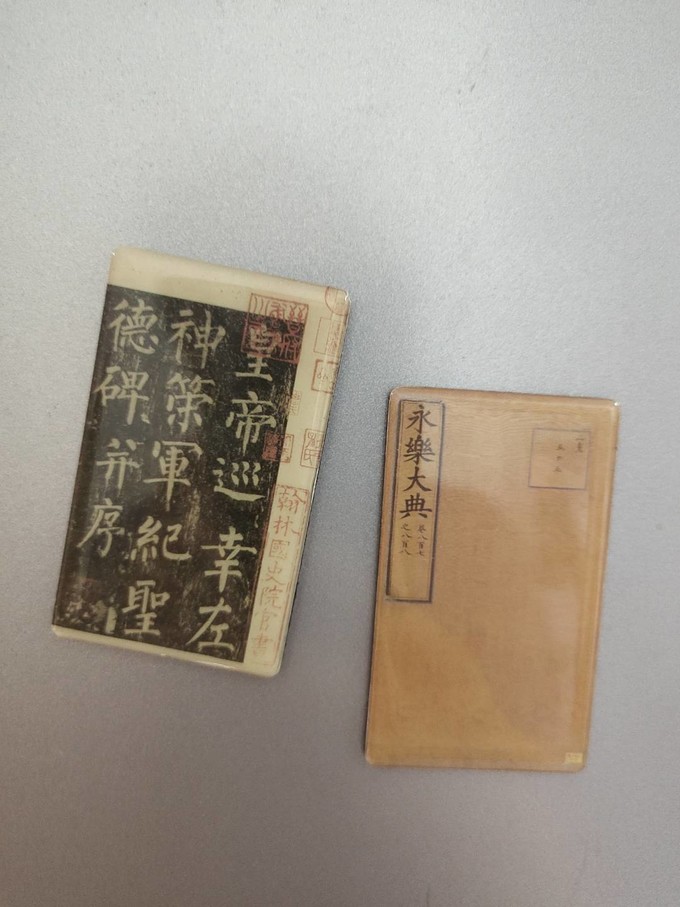 皇帝巡幸左
神策軍紀聖
德碑并序
翰林國史院官書
永樂大典
卷八百七
之八百八